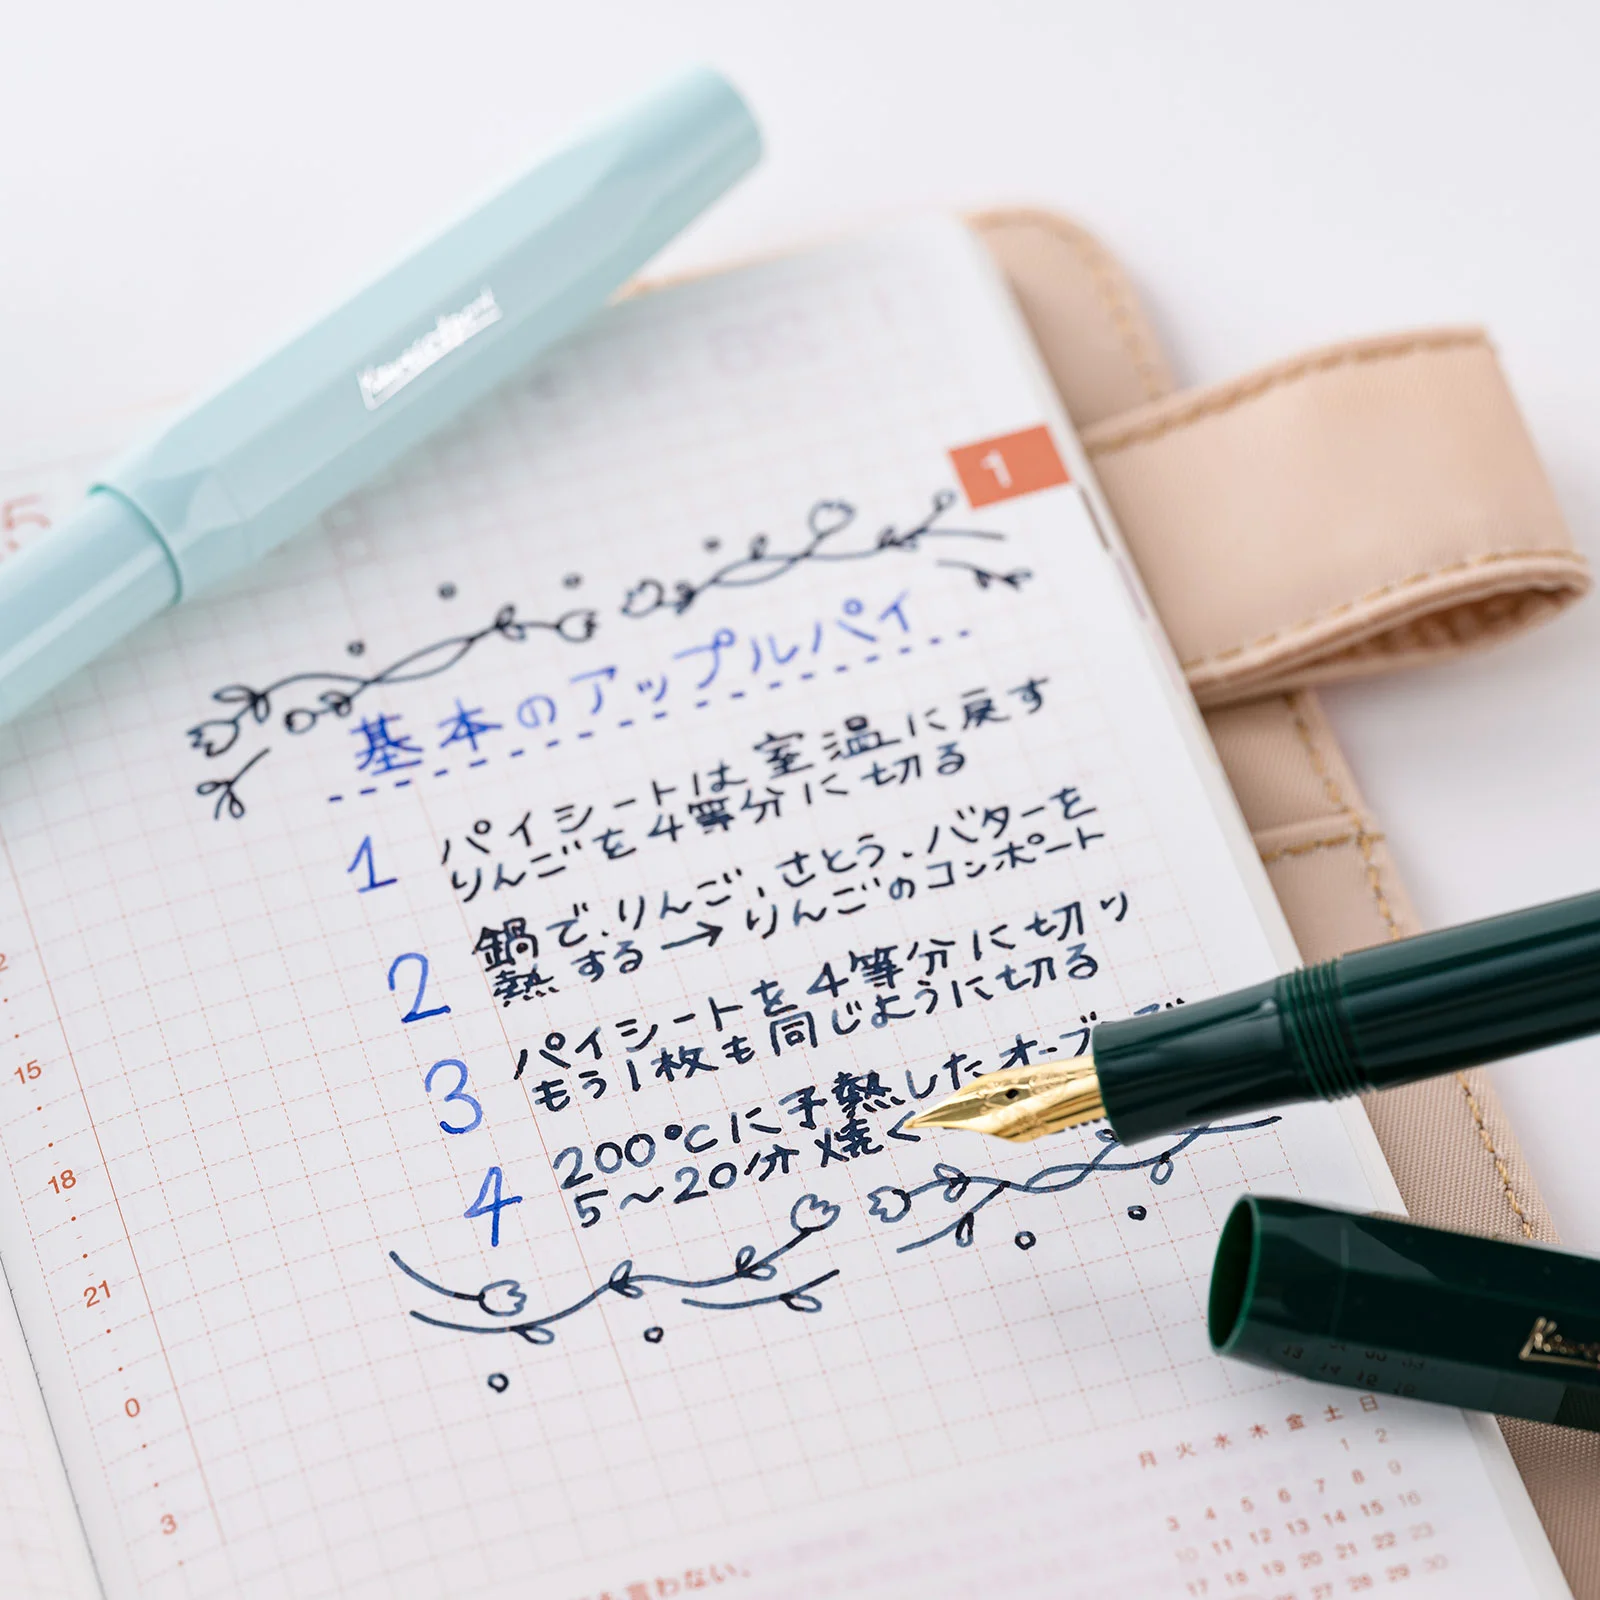 Kaweco
1
基本のアップルパイ
1 パイシートは室温に戻す
りんごを4等分に切る
2 鍋で、りんご、さとう、バターを
熱する→りんごのコンポート
3 パイシートを4等分に切り
もう1枚も同じように切る
4 200℃に予熱したオーブ
5〜20分焼く
15
18
21
0
3
月 火 水 木 金 土 日
1 2
3 4 5 6 7 8 9
10 11 12 13 14 15 16
17 18 19 20 21 22 23
26 27 28 29 30
言わない。